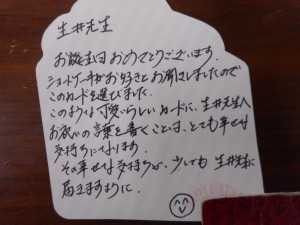 生井先生
お誕生日おめでとうございます。
ショートケーキがお好きとお聞きしましたので
このカードを選びました。
このような可愛いらしいカードに、生井先生へ
お祝いの言葉を書くことは、とても幸せな
気持ちになります。
その幸せな気持ちが、少しでも生井先生に
届きますように。